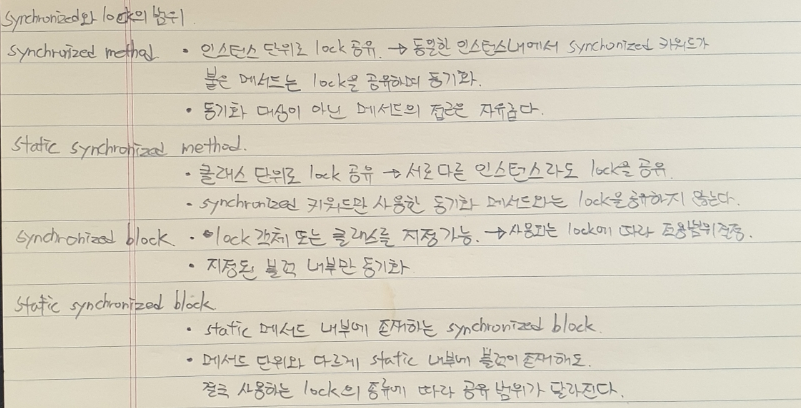 synchronized와 lock의 범위
synchronized method • 인스턴스 단위로 lock 공유. → 동일한 인스턴스내에서 synchonized 키워드가
붙은 메서드는 lock을 공유하며 동기화.
• 동기화 대상이 아닌 메서드의 접근은 자유롭다.
static synchronized method.
• 클래스 단위로 lock 공유 → 서로 다른 인스턴스라도 lock을 공유.
• synchronized 키워드만 사용한 동기화 메서드와는 lock을 공유하지 않는다.
synchronized block. • lock 객체 또는 클래스를 지정 가능. → 사용되는 lock에 따라 적용범위 결정.
• 지정된 블럭 내부만 동기화.
static synchronized block
• static 메서드 내부에 존재하는 synchronized block.
• 메서드 단위와 다르게 static 내부에 블럭이 존재해도.
결국 사용하는 lock의 종류에 따라 공유 범위가 달라진다.